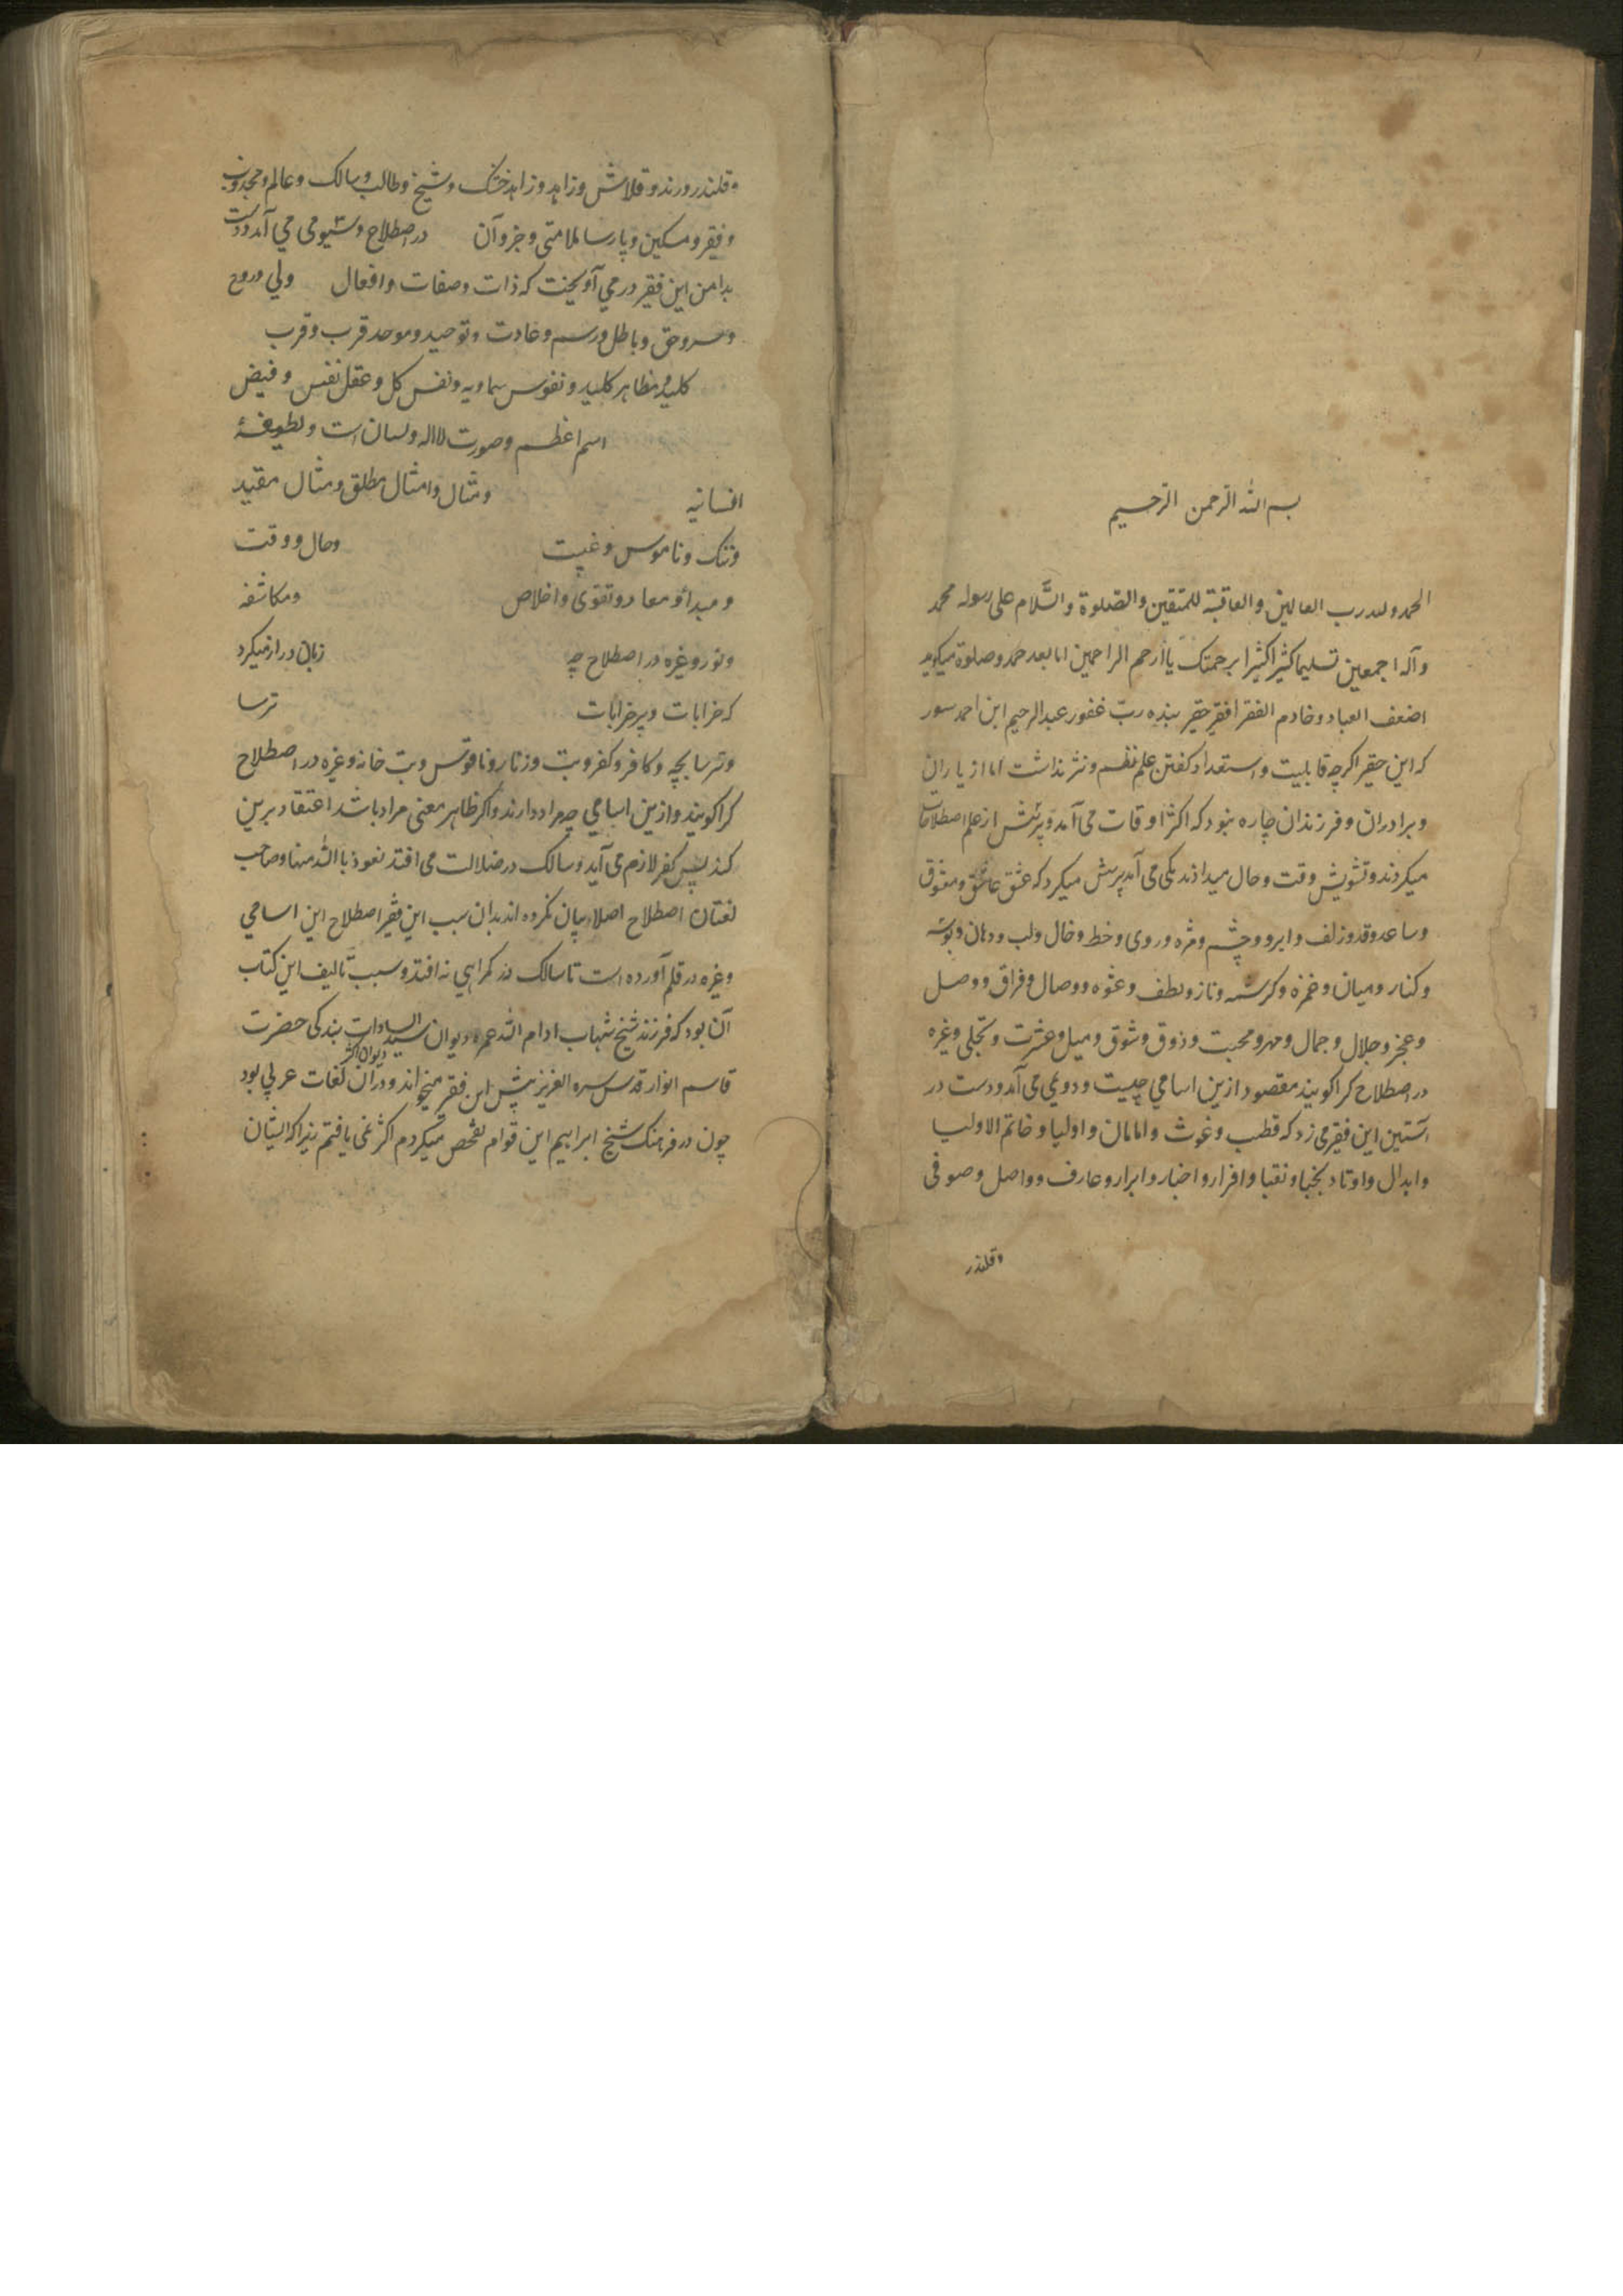 بسم الله الرحمن الرحیم
الحمد ولله رب العالمین والعاقبة للمتقین والصلوة والسلام علی رسوله محمد
وآله اجمعین تسلیما کثیرا کثیرا برحمتک یا ارحم الراحمین اما بعد حمد وصلوة میکوید
اضعف العباد وخادم الفقرا فقیر حقیر بنده رب غفور عبدالرحیم ابن احمد سور
که این حقیر اکرچه قابلیت واستعداد کفتن علم نظم ونثر نداشت اما از یاران
وبرادران وفرزندان چاره نبود که اکثر اوقات می آمد وپرسش از علم اصطلاحات
میکردند وتشویش وقت وحال میدادند یکی می آمد پرسش میکرد که عشق عاشق ومعشوق
وساعد وقد وزلف وابرو وچشم ومژه وروی وخط وخال ولب ودهان وبوسه
وکنار ومیان وغمزه وکرشمه وناز ولطف وعشوه ووصال وفراق ووصل
وعجز وجلال وجمال ومهر ومحبت وذوق وشوق ومیل وعشرت وتجلی وغیره
در اصطلاح کرا کویند مقصود ازین اسامي چیست ودویمی می آمد ودست در
آستین این فقیر می زد که قطب وغوث وامامان واولیا وخاتم الاولیا
وابدال واوتاد ونجبا ونقبا وافراد واخیار وابرار وعارف وواصل وصوفی
وقلندر
وقلندر ورند وقلاش وزاهد وزاهد خشک وشیخ وطالب وسالک وعالم ومجذوب
وفقیر ومسکین وپارسا ملامتی وجز وآن در اصطلاح وسیومی می آمد ودست
بدامن این فقیر در مي آویخت که ذات وصفات وافعال ولي وروح
وسر وحق وباطل ورسم وعادت وتوحید وموحد قرب وقرب
کلید ومظاهر کلیه ونفوس سماویه ونفس کل وعقل نفس وفیض
اسم اعظم وصورت لااله ولسان است ولطیفهٔ
انسانیه ومثال وامثال مطلق ومثال مقید
وننک وناموس وغیبت وحال ووقت
ومبدأ ومعاد وتقوی واخلاص ومکاشفه
ونور وغیره در اصطلاح چه زبان دراز میکرد
که خرابات وپیر خرابات ترسا
وترسا بچه وکافر وکفر وبت وزنار وناقوس وبت خانه وغیره در اصطلاح
کرا کویند وازین اسامي چه مراد دارند واکر ظاهر معنی مراد باشد اعتقاد برین
کند پس کفر لازم می آید وسالک در ضلالت می افتد نعوذ بالله منها وصاحب
لغتان اصطلاح اصلا بیان نکرده اند بدان سبب این فقیر اصطلاح این اسامي
وغیره در قلم آورده است تا سالک در کمراهي نه افتد وسبب تالیف این کتاب
آن بود که فرزند شیخ شهاب ادام الله عمره دیوان سید السادات بندکی حضرت
قاسم انوار قدس سره العزیز پیش این فقیر میخواند ودران دیوان اکثر لغات عربي بود
چون در فرهنک شیخ ابراهیم این قوام تفحص میکردم اکثر نمی یافتم زیرا که ایشان